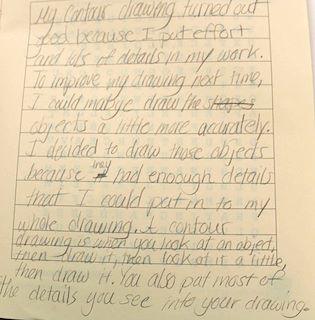 My contour drawing turned out
good because I put effort
and lots of details in my work.
To improve my drawing next time,
I could maybe draw the shapes
objects a little more accurately.
I decided to draw those objects
because they had enough details
that I could put in to my
whole drawing. A contour
drawing is when you look at an object,
then draw it, then look at it a little,
then draw it. You also put most of
the details you see into your drawing.